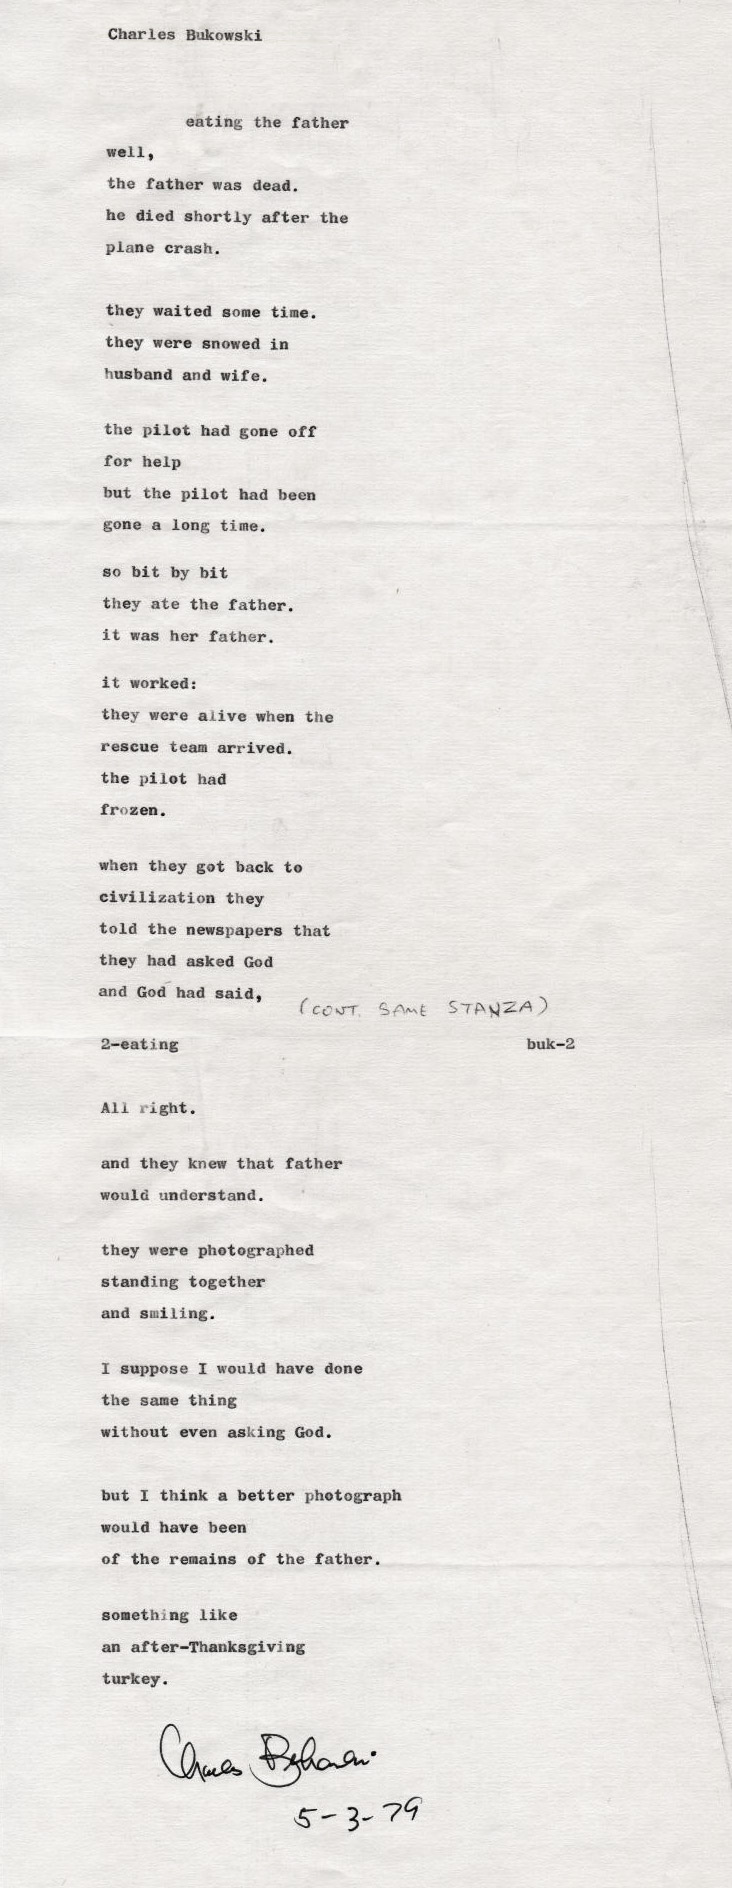 Charles Bukowski
eating the father
well,
the father was dead.
he died shortly after the
plane crash.
they waited some time.
they were snowed in
husband and wife.
the pilot had gone off
for help
but the pilot had been
gone a long time.
so bit by bit
they ate the father.
it was her father.
it worked:
they were alive when the
rescue team arrived.
the pilot had
frozen.
when they got back to
civilization they
told the newspapers that
they had asked God
and God had said,
(CONT. SAME STANZA)
2-eating buk-2
All right.
and they knew that father
would understand.
they were photographed
standing together
and smiling.
I suppose I would have done
the same thing
without even asking God.
but I think a better photograph
would have been
of the remains of the father.
something like
an after-Thanksgiving
turkey.
Charles Bukowski
5-3-79